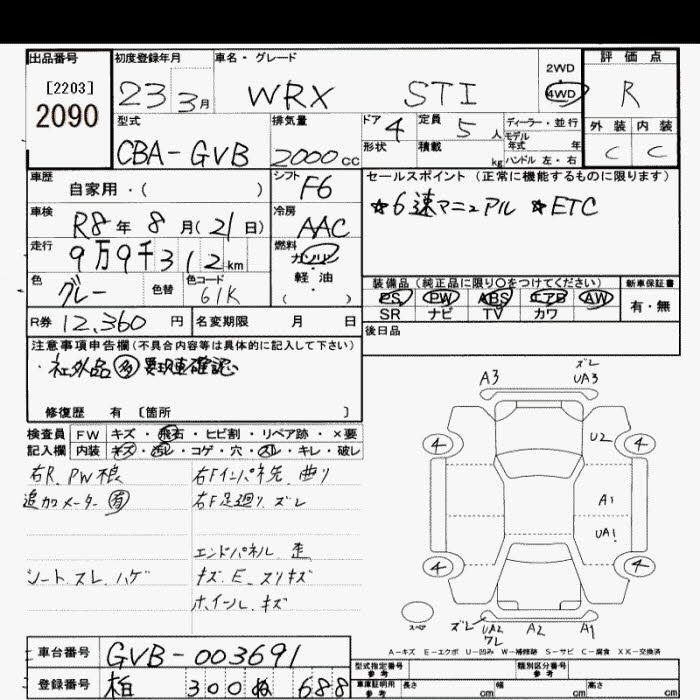 出品番号 初度登録年月 車名・グレード 2WD 評価点
[2203] 23 3月 WRX STI 4WD R
2090
型式 排気量 ドア 4 定員 5人 ディーラー・並行 外装 内装
CBA-GVB 2000cc 形状 積載 kg モデル年式 年 C C
ハンドル 左・右
車歴 自家用・( ) シフト F6 セールスポイント (正常に機能するものに限ります)
車検 R8年 8月(21日) 冷房 AAC ☆6速マニュアル ☆ETC
走行 9万9千312km 燃料 ガソリン
軽油
( )
色 グレー 色替 色コード 61K 装備品 (純正品に限り○をつけてください) 新車保証書
PS PW ABS エアB AW 有・無
SR ナビ TV カワ
R券 12,360円 名変期限 月 日 後日品
注意事項申告欄(不具合内容等は具体的に記入して下さい)
・社外品 多 要現車確認
修復歴 有 〔箇所 〕
検査員 FW キズ・飛石・ヒビ割・リペア跡・×要
記入欄 内装 キズ・汚レ・コゲ・穴・スレ・キレ・破レ
右R.PW 右Fインパネ先 曲り
追加メーター 有 右F足廻り ズレ
エンドパネル 歪
シート スレ ハゲ キズ.E.スリキズ
ホイール キズ
A3 ズレ UA3
4 U2 4
A1
UA1
4 4
スペア ズレ UA2 ワレ A2 A1
A-キズ E-エクボ U-凹み W-補修跡 S-サビ C-腐食 XX-交換済
車台番号 GVB-003691
登録番号 柏 300 ぬ 688
型式指定番号 参考 類別区分番号 参考
車庫証明用 参考 長さ cm 幅 cm 高さ cm